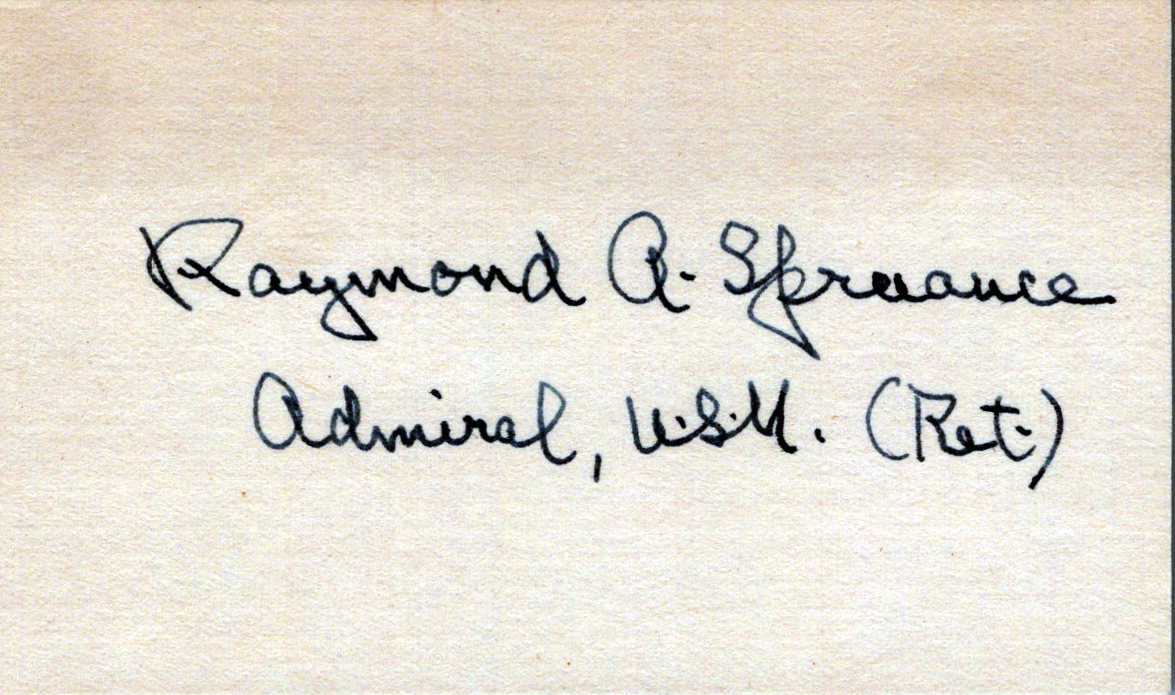 Raymond A. Spruance
Admiral, U.S.N. (Ret.)